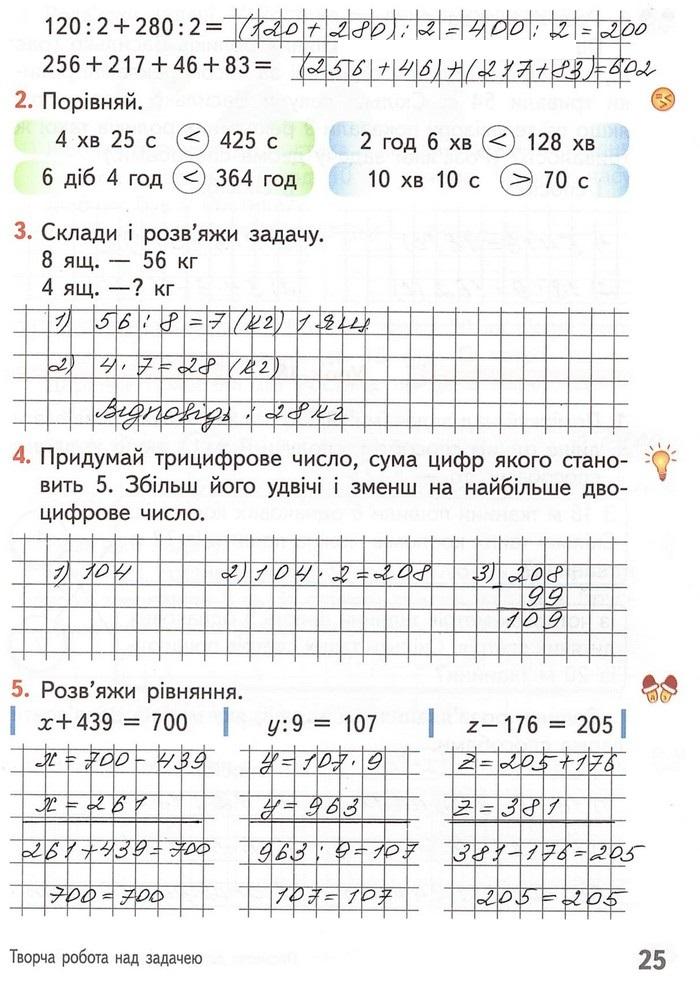 120 : 2 + 280 : 2 = (120 + 280) : 2 = 400 : 2 = 200
256 + 217 + 46 + 83 = (256 + 46) + (217 + 83) = 602
2. Порівняй.
4 хв 25 с < 425 с 2 год 6 хв < 128 хв
6 діб 4 год < 364 год 10 хв 10 с > 70 с
3. Склади і розв'яжи задачу.
8 ящ. — 56 кг
4 ящ. — ? кг
1) 56 : 8 = 7 (кг) 1 ящ.
2) 4 · 7 = 28 (кг)
Відповідь : 28 кг
4. Придумай трицифрове число, сума цифр якого стано-
вить 5. Збільш його удвічі і зменш на найбільше дво-
цифрове число.
1) 104 2) 104 · 2 = 208 3) 208
- 99
109
5. Розв'яжи рівняння.
x + 439 = 700 y : 9 = 107 z − 176 = 205
x = 700 − 439 y = 107 · 9 z = 205 + 176
x = 261 y = 963 z = 381
261 + 439 = 700 963 : 9 = 107 381 − 176 = 205
700 = 700 107 = 107 205 = 205
Творча робота над задачею 25